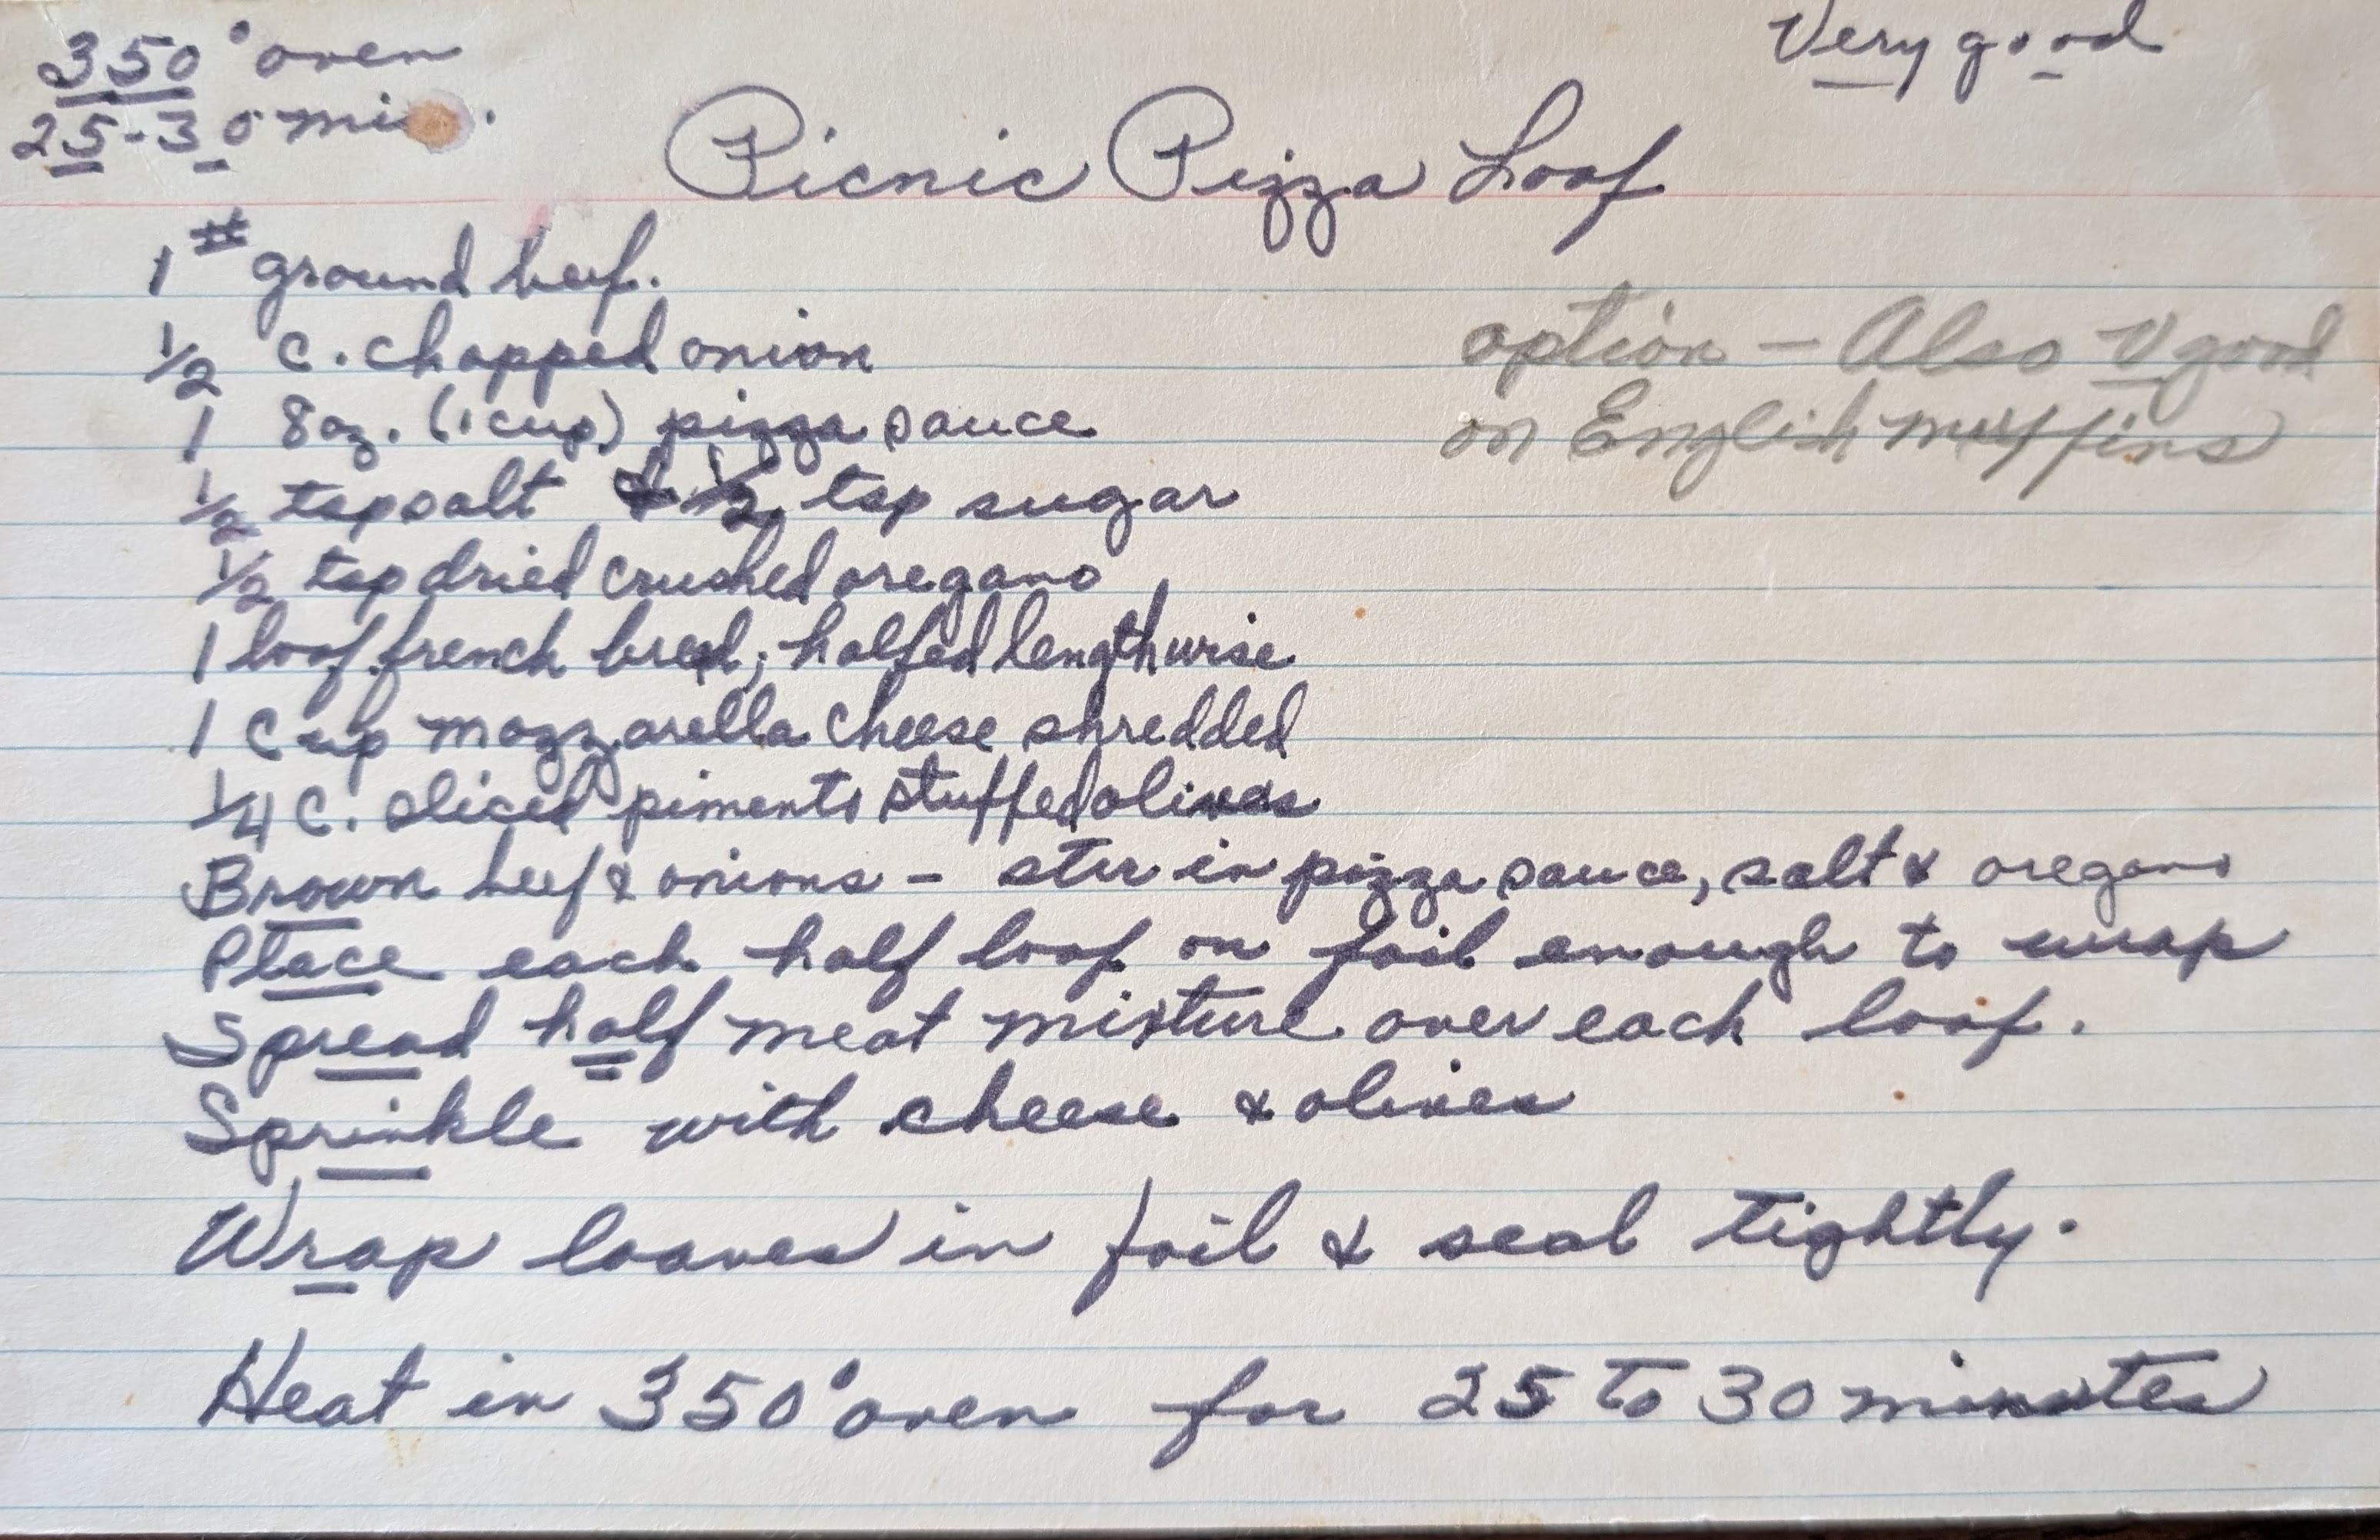 350° oven
25-30 min.
Very good
Picnic Pizza Loaf
1# ground beef.
option - Also V good
on English muffins
1/2 c. chopped onion
1 8oz. (1 cup) pizza sauce
1/2 tsp salt & 1/2 tsp sugar
1/2 tsp dried crushed oregano
1 loaf french bread; halfed lengthwise
1 Cup mozzarella cheese shredded
1/4 C. sliced pimento stuffed olives
Brown beef & onions - stir in pizza sauce, salt & oregano
Place each half loaf on foil enough to wrap
Spread half meat mixture over each loaf.
Sprinkle with cheese & olives
Wrap loaves in foil & seal tightly.
Heat in 350° oven for 25 to 30 minutes